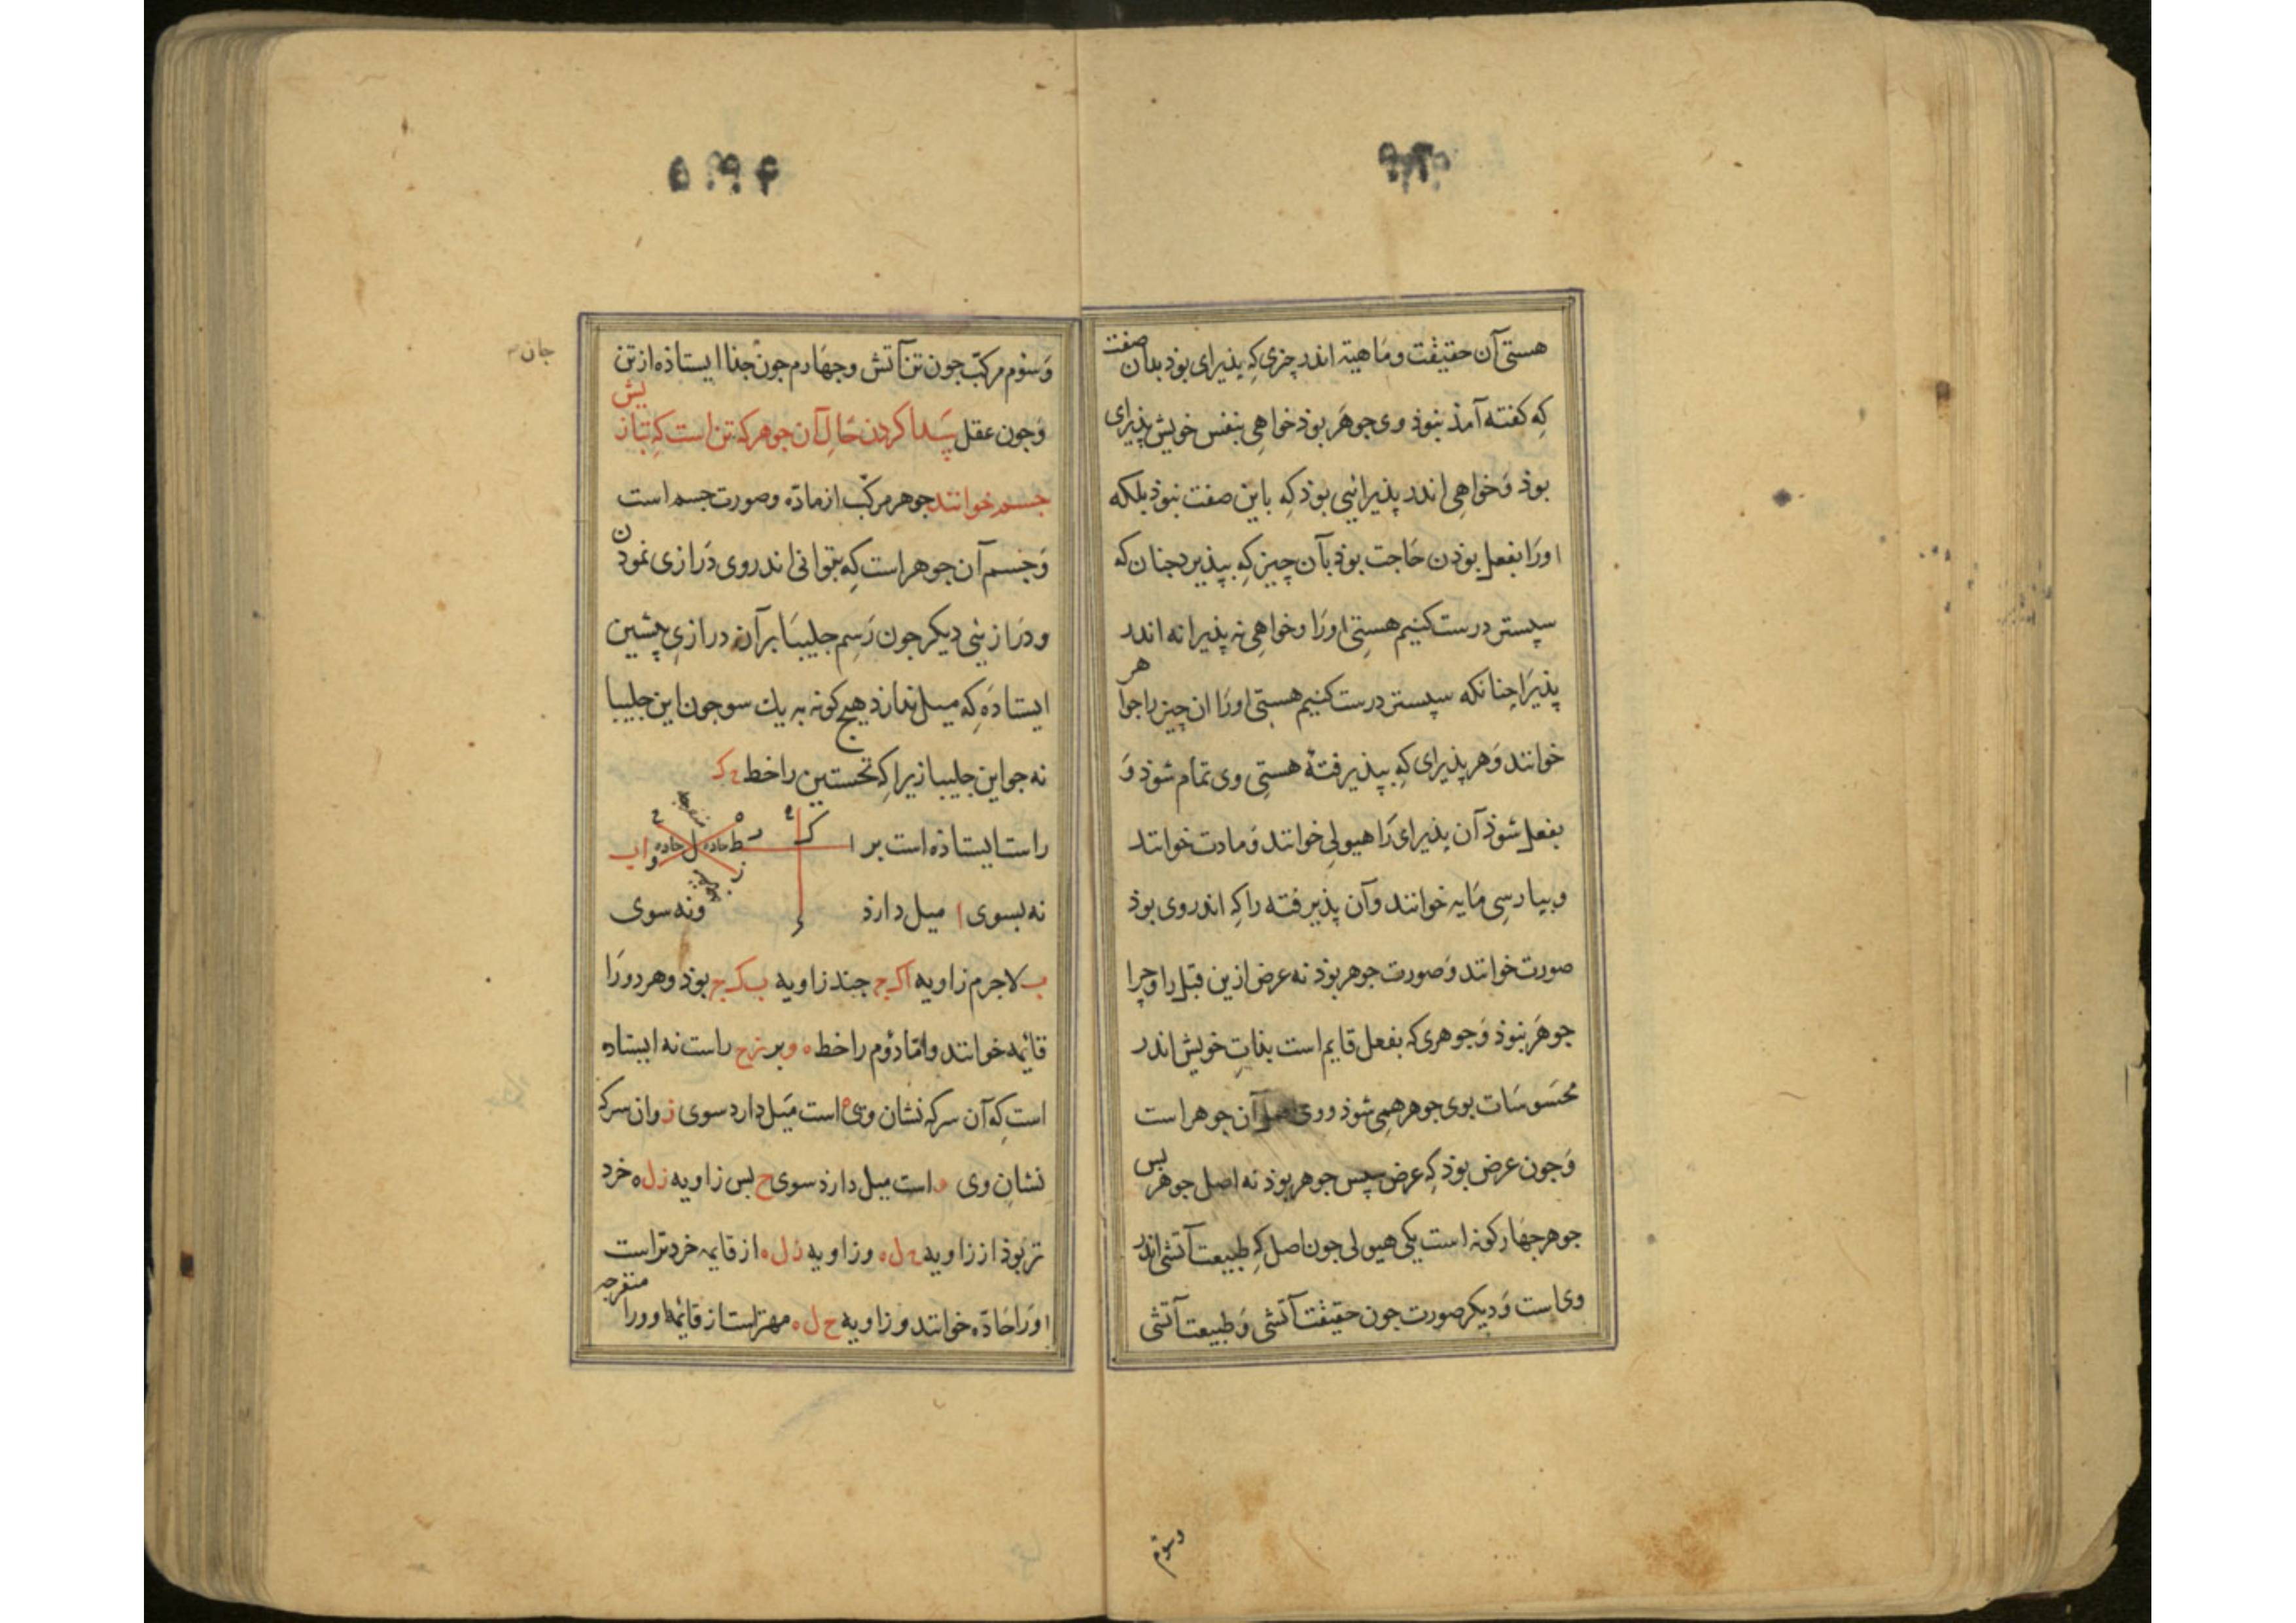 هستی آن حقیقت و مَاهیة اندر چیزی کِه پذیرای بوذ بدان صفت
کِه کفته آمذ نبوذ وی جوهَر بوذ خواهِی بنفس خویش پذیرای
بوذ وَخواهِی اندر پذیرائیی بوذ کِه باین صفت نبوذ بلکه
اورَا بفعل بوذن حَاجت بوذ بآن چیز کِه بپذیرد جنان که
سپستر درست کنیم هستِی اورَا وخواهِی نه پذیرا نه اندر
پذیرَا جنانکه سپستر درست کنیم هستی اورَا ان چیز را جوهر
خوانند وَهر پذیرای کِه بپذیرفتهٔ هستِی وی تمام شوذ وَ
بفعل شوذ آن پذیرای رَا هیولی خوانند وَمادت خوانند
وبپارسِی مَایه خوانند وآن پذیرفته را کِه اندر وی بوذ
صورت خوانند وَصورت جوهر بوذ نه عرض ازین قبل را وجرا
جوهَر نبوذ وَجوهری که بفعل قایم است بذاتِ خویش اندر
محسَوسَات بوی جوهر همِی شوذ ووی اصل آن جوهر است
وَجون عرض بوذ کِه عرض سپس جوهر بوذ نه اصل جوهر بس
جوهر جهَار کونه است یکی هیولی جون اصل کِه طبیعت آتشی اندر
وی است وَدیکر صورت جون حقیقت آتشی وَطبیعت آتشی
وسوم
وَسوُم مرکبّ جون تن آتش وجهَارم جون جذا ایستاذه از تن
جان
وَجون عقل پَیدا کردن حَالِ آن جوهر که تن است کِه بتازیش
جسم خوانند جوهر مرکّب از مادّه وصورت جسم است
وَجسم آن جوهر است کِه بتوانی اندر وی دَرازی نموذن
ودرَازیئی دیکر جون رَسم جلیپَا بر آن درازیِ پیشین
ایستاده کِه میل ندارذ هیج کونه به یك سو جون این جلیپا
نه جو این جلیپا زیرا کِه نخستین را خط ءک
راست ایستاذه است بر ا اب
نه بسوی ا میل دارذ ونه سوی
ب لاجرم زاویه اکج جند زاویه بکج بوذ وهر دورَا
قائمه خوانند وامّا دوُم را خط ه و بر زح راست نه ایستاده
است کِه آن سر که نشان وی ه است میَل دارد سوی ز وان سر که
نشانِ وی و است میل دارذ سوی ح بس زاویه زله خرد
تر بوَذ از زاویه حله وزاویه زله از قایمه خردتر است
اورَا حَادّه خوانند وزاویه حله مهتر است از قائمهٔ اوورا منفرجه